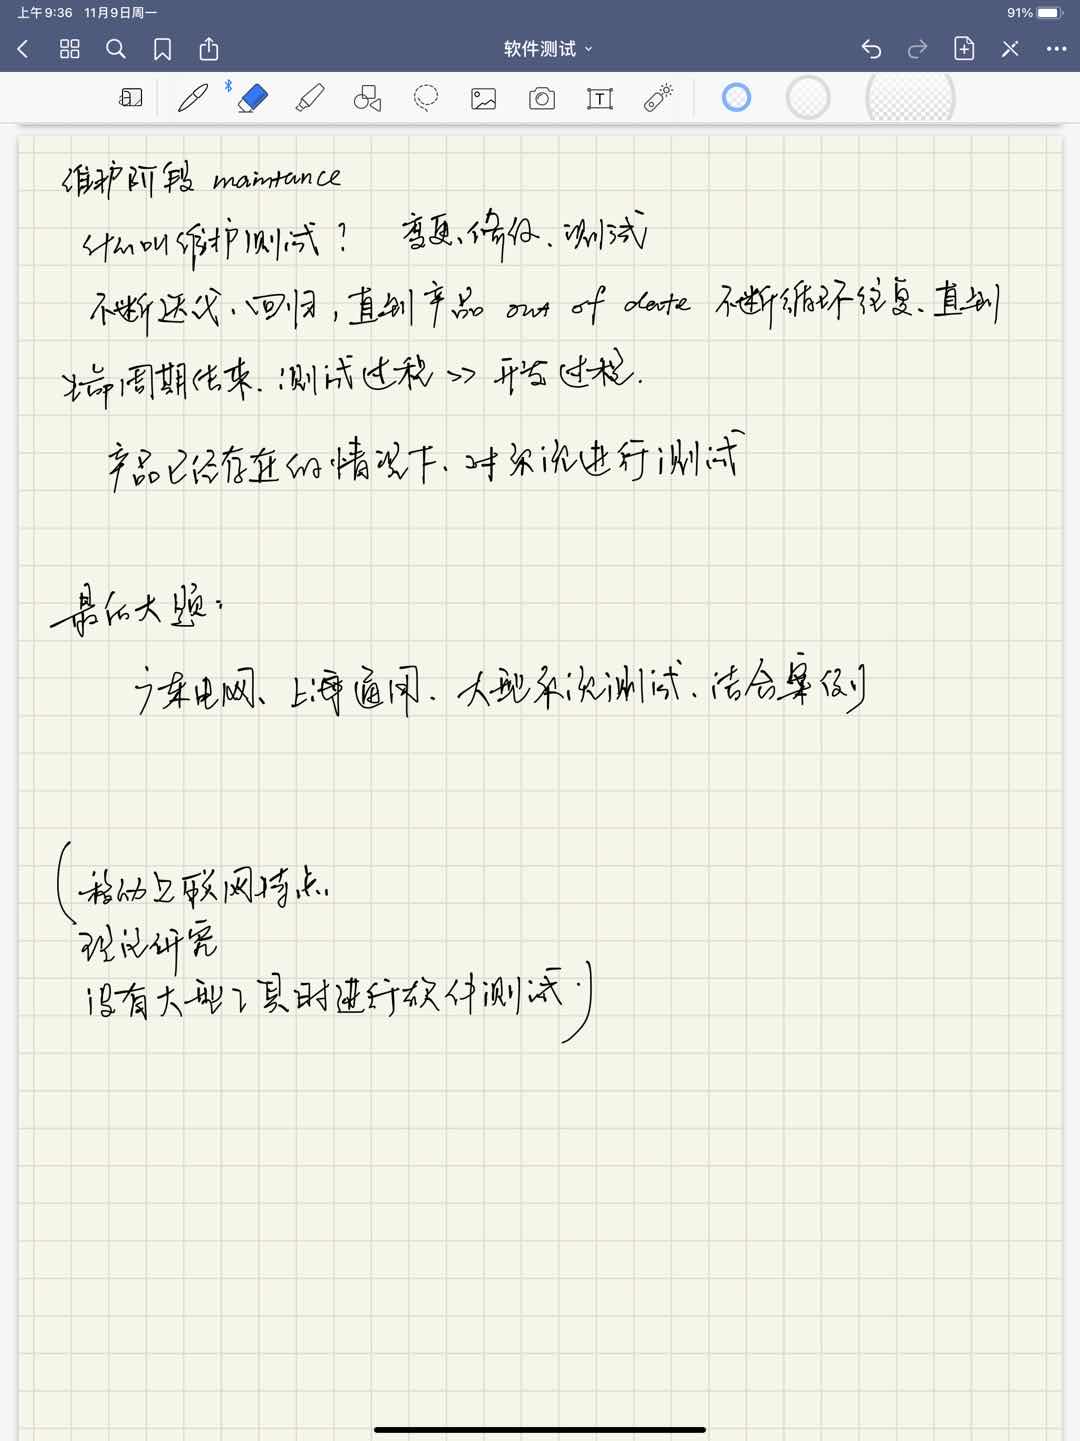 上午9:36 11月9日周一 91%
软件测试
T
维护阶段 maintance
什么叫维护测试? 变更、修复、测试
不断迭代、回归,直到产品 out of date 不断循环往复、直到
生命周期结束. 测试过程 >> 开发过程.
产品已经存在的情况下、对系统进行测试
最后大题:
广东电网、上海通用、大型系统测试、结合案例
(移动互联网特点、
理论研究
没有大型工具时进行软件测试.)